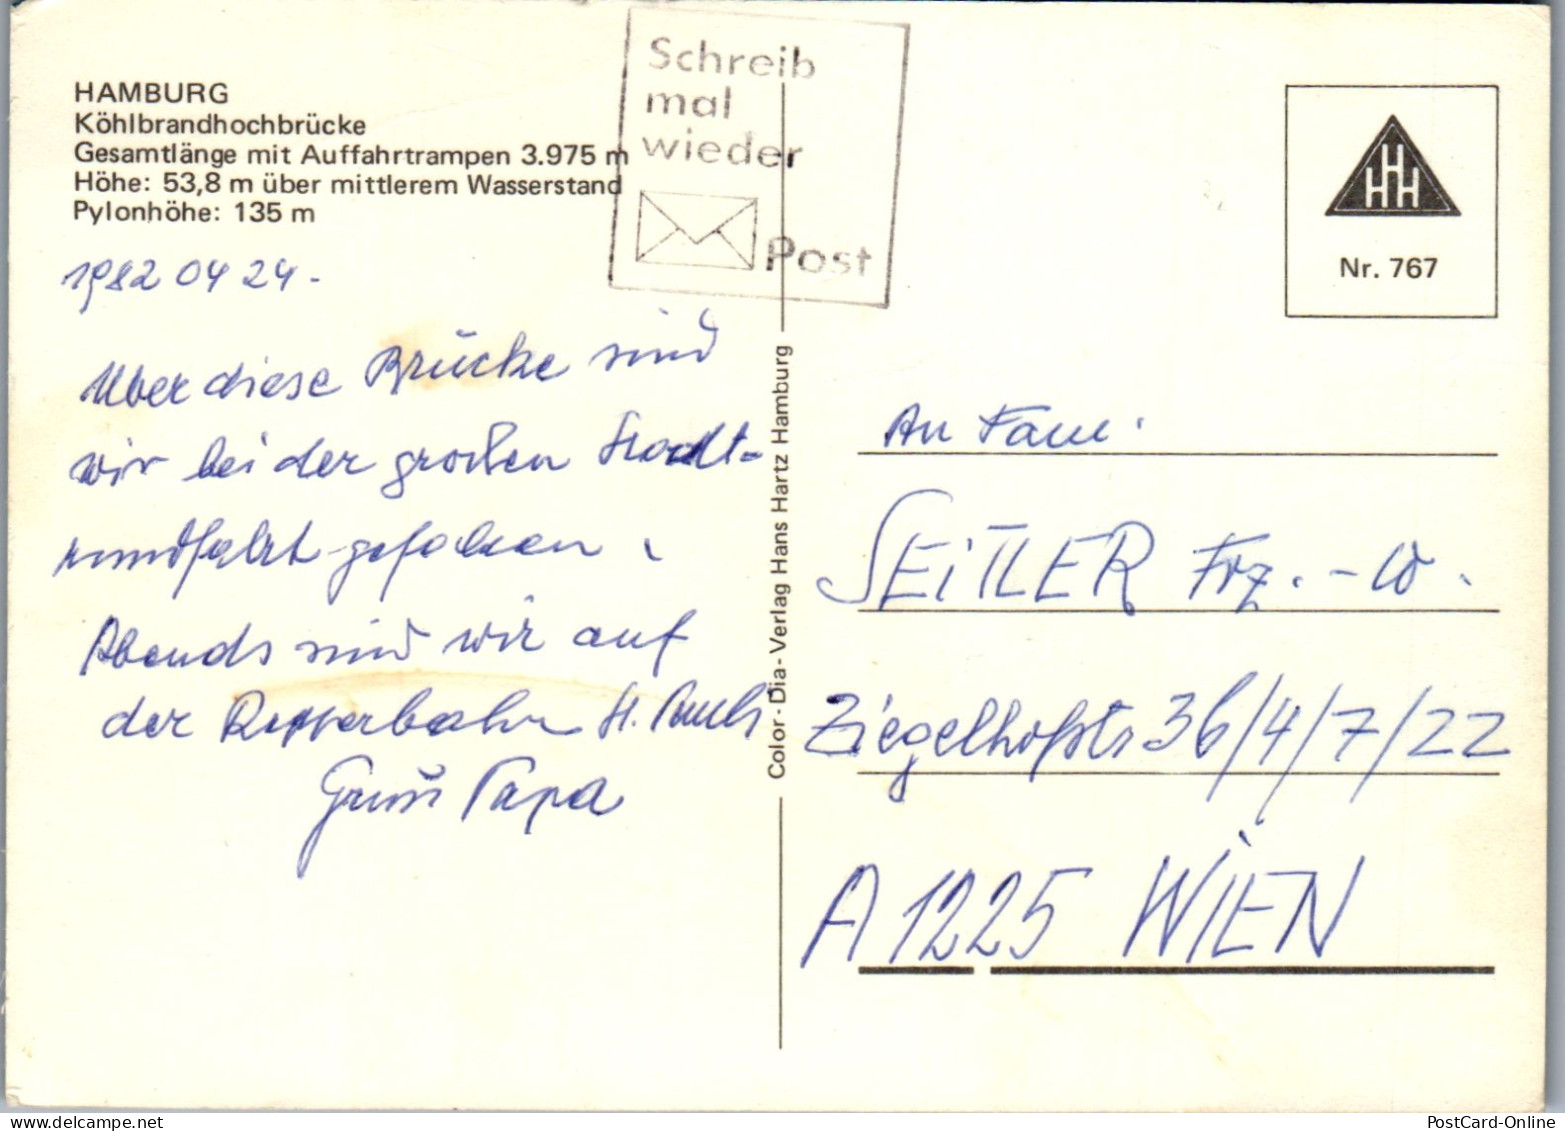 HAMBURG
Köhlbrandhochbrücke
Gesamtlänge mit Auffahrtrampen 3.975 m
Höhe: 53,8 m über mittlerem Wasserstand
Pylonhöhe: 135 m
Schreib
mal
wieder
Post
1982 04 24.
Über diese Brücke sind
wir bei der großen Stadt-
rundfahrt gefahren.
Abends sind wir auf
der Reeperbahn St. Pauli
Gruß Papa
Color-Dia-Verlag Hans Hartz Hamburg
HHH
Nr. 767
An Fam.
SEITLER Frz. - W.
Ziegelhofstr 36/4/7/22
A 1225 WIEN
PostCard-Online
www.delcampe.net